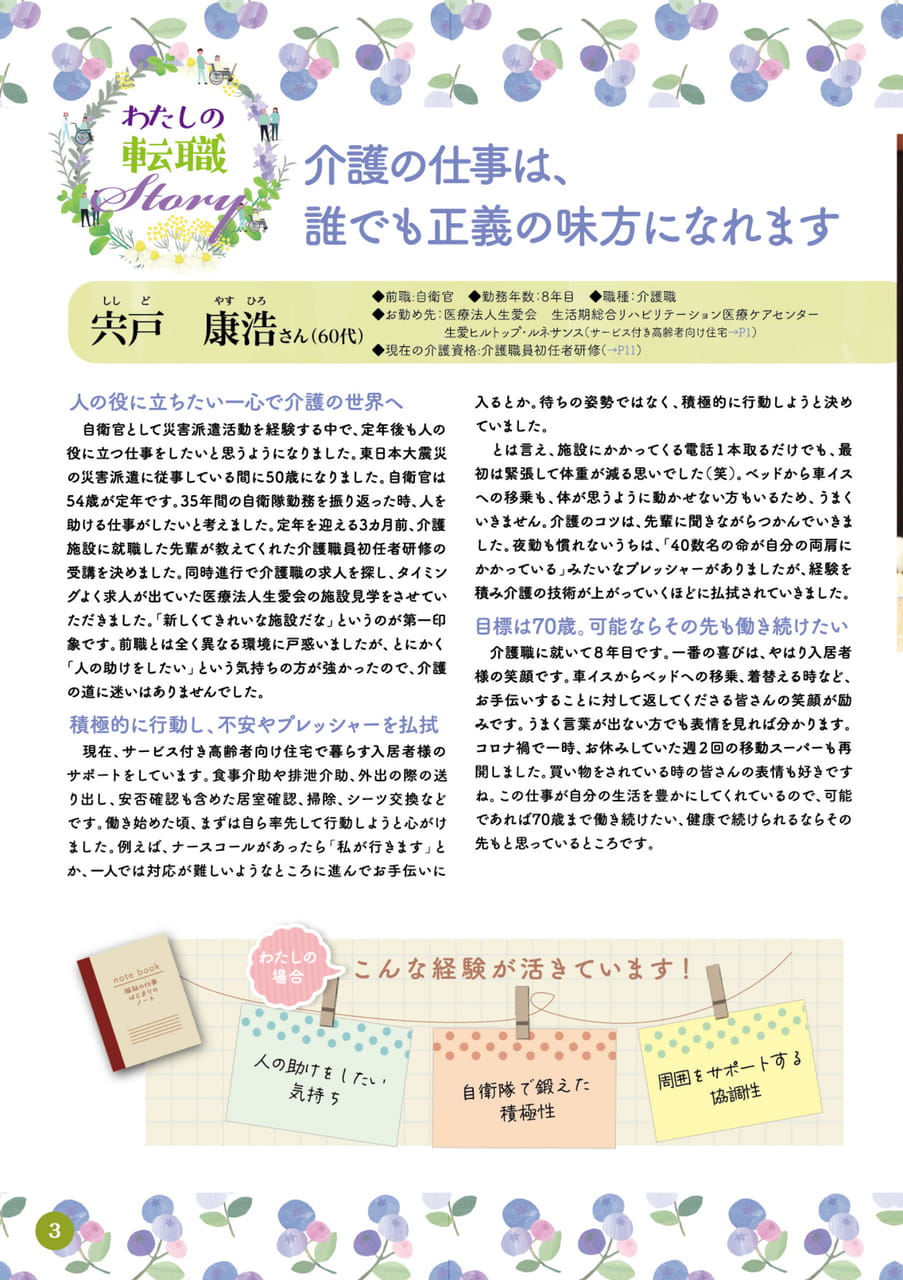 わたしの
転職
Story
介護の仕事は、
誰でも正義の味方になれます
ししど やすひろ
宍戸 康浩さん(60代)
◆前職:自衛官 ◆勤務年数:8年目 ◆職種:介護職
◆お勤め先:医療法人生愛会 生活期総合リハビリテーション医療ケアセンター
生愛ヒルトップ・ルネサンス(サービス付き高齢者向け住宅→P1)
◆現在の介護資格:介護職員初任者研修(→P11)
人の役に立ちたい一心で介護の世界へ
自衛官として災害派遣活動を経験する中で、定年後も人の
役に立つ仕事をしたいと思うようになりました。東日本大震災
の災害派遣に従事している間に50歳になりました。自衛官は
54歳が定年です。35年間の自衛隊勤務を振り返った時、人を
助ける仕事がしたいと考えました。定年を迎える3カ月前、介護
施設に就職した先輩が教えてくれた介護職員初任者研修の
受講を決めました。同時進行で介護職の求人を探し、タイミン
グよく求人が出ていた医療法人生愛会の施設見学をさせてい
ただきました。「新しくてきれいな施設だな」というのが第一印
象です。前職とは全く異なる環境に戸惑いましたが、とにかく
「人の助けをしたい」という気持ちの方が強かったので、介護
の道に迷いはありませんでした。
積極的に行動し、不安やプレッシャーを払拭
現在、サービス付き高齢者向け住宅で暮らす入居者様の
サポートをしています。食事介助や排泄介助、外出の際の送
り出し、安否確認も含めた居室確認、掃除、シーツ交換など
です。働き始めた頃、まずは自ら率先して行動しようと心がけ
ました。例えば、ナースコールがあったら「私が行きます」と
か、一人では対応が難しいようなところに進んでお手伝いに
入るとか。待ちの姿勢ではなく、積極的に行動しようと決め
ていました。
とは言え、施設にかかってくる電話1本取るだけでも、最
初は緊張して体重が減る思いでした(笑)。ベッドから車イス
への移乗も、体が思うように動かせない方もいるため、うまく
いきません。介護のコツは、先輩に聞きながらつかんでいきま
した。夜勤も慣れないうちは、「40数名の命が自分の両肩に
かかっている」みたいなプレッシャーがありましたが、経験を
積み介護の技術が上がっていくほどに払拭されていきました。
目標は70歳。可能ならその先も働き続けたい
介護職に就いて8年目です。一番の喜びは、やはり入居者
様の笑顔です。車イスからベッドへの移乗、着替える時など、
お手伝いすることに対して返してくださる皆さんの笑顔が励
みです。うまく言葉が出ない方でも表情を見れば分かります。
コロナ禍で一時、お休みしていた週2回の移動スーパーも再
開しました。買い物をされている時の皆さんの表情も好きです
ね。この仕事が自分の生活を豊かにしてくれているので、可能
であれば70歳まで働き続けたい、健康で続けられるならその
先もと思っているところです。
note book
福祉の仕事
はじまりの
ノート
わたしの
場合
こんな経験が活きています!
人の助けをしたい
気持ち
自衛隊で鍛えた
積極性
周囲をサポートする
協調性
3